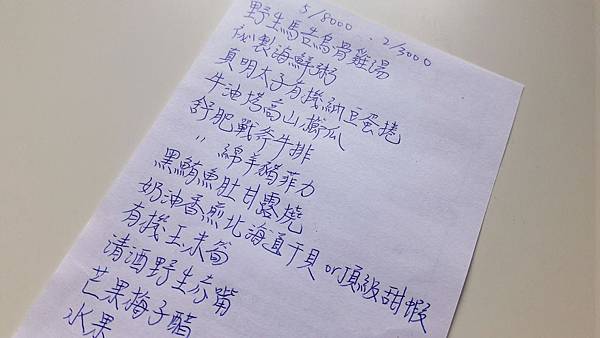 5/8000 . 2/3000
野生馬告烏骨雞湯
秘製海鮮粥
真明太子有機納豆蛋捲
牛油塔高山櫛瓜
舒肥戰斧牛排
〃 綿羊豬菲力
黑鮪魚肚甘露燒
奶油香煎北海道干貝or頂級甜蝦
有機玉米筍
清酒野生赤嘴
芒果梅子醋
水果